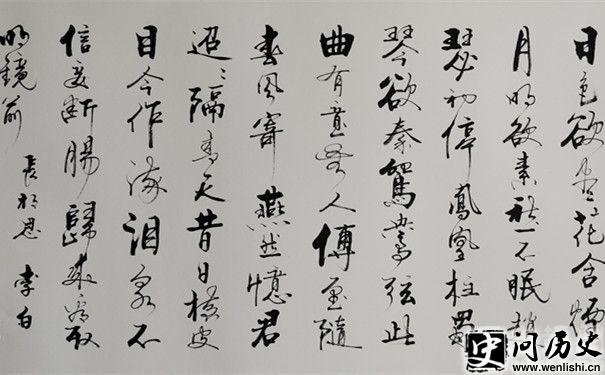 日色欲尽花含煙
月明欲素愁不眠趙
瑟初停鳳凰柱蜀
琴欲奏鴛鴦弦此
曲有意無人傳愿隨
春風寄燕然憶君
迢迢隔青天昔日橫波
目今作流淚泉不
信妾断腸歸來看取
明鏡前 長相思 李白
史问历史
www.wenlishi.cn